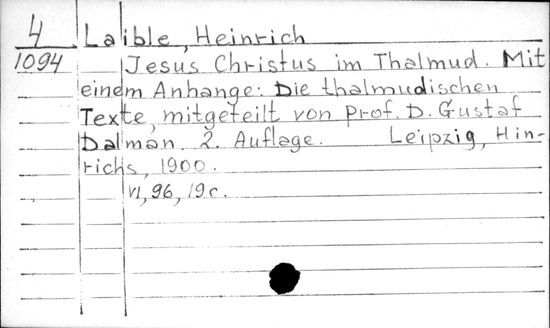 4 Laible, Heinrich
1094 Jesus Christus im Thalmud. Mit
einem Anhange: Die thalmudischen
Texte, mitgeteilt von Prof. D. Gustaf
Dalman. 2. Auflage. Leipzig, Hin-
richs, 1900.
VI, 96, 19 c.